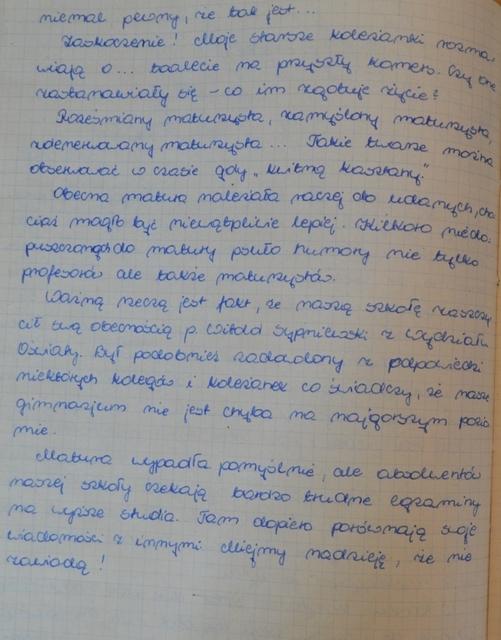 niemal pewny, że tak jest...
Zaskoczenie! Moje starsze koleżanki rozma-
wiają o... toalecie na przyszły komers. Czy one
zastanawiały się - co im zgotuje życie?
Roześmiany maturzysta, zamyślony maturzysta,
zdenerwowany maturzysta... Takie twarze można
obserwować w czasie gdy „kwitną kasztany".
Obecna matura należała raczej do udanych, cho-
ciaż mogło być niewątpliwie lepiej. Kilkoro niedo-
puszczonych do matury psuło humory nie tylko
profesorów ale także maturzystów.
Ważną rzeczą jest fakt, że naszą szkołę zaszczy-
cił swą obecnością p. Witold Sypniewski z Wydziału
Oświaty. Był podobnież zadowolony z odpowiedzi
niektórych kolegów i koleżanek co świadczy, że nasze
gimnazjum nie jest chyba na najgorszym pozio-
mie.
Matura wypadła pomyślnie, ale absolwentów
naszej szkoły czekają bardzo trudne egzaminy
na wyższe studia. Tam dopiero porównają swoje
wiadomości z innymi. Miejmy nadzieję, że nie
zawiodą!